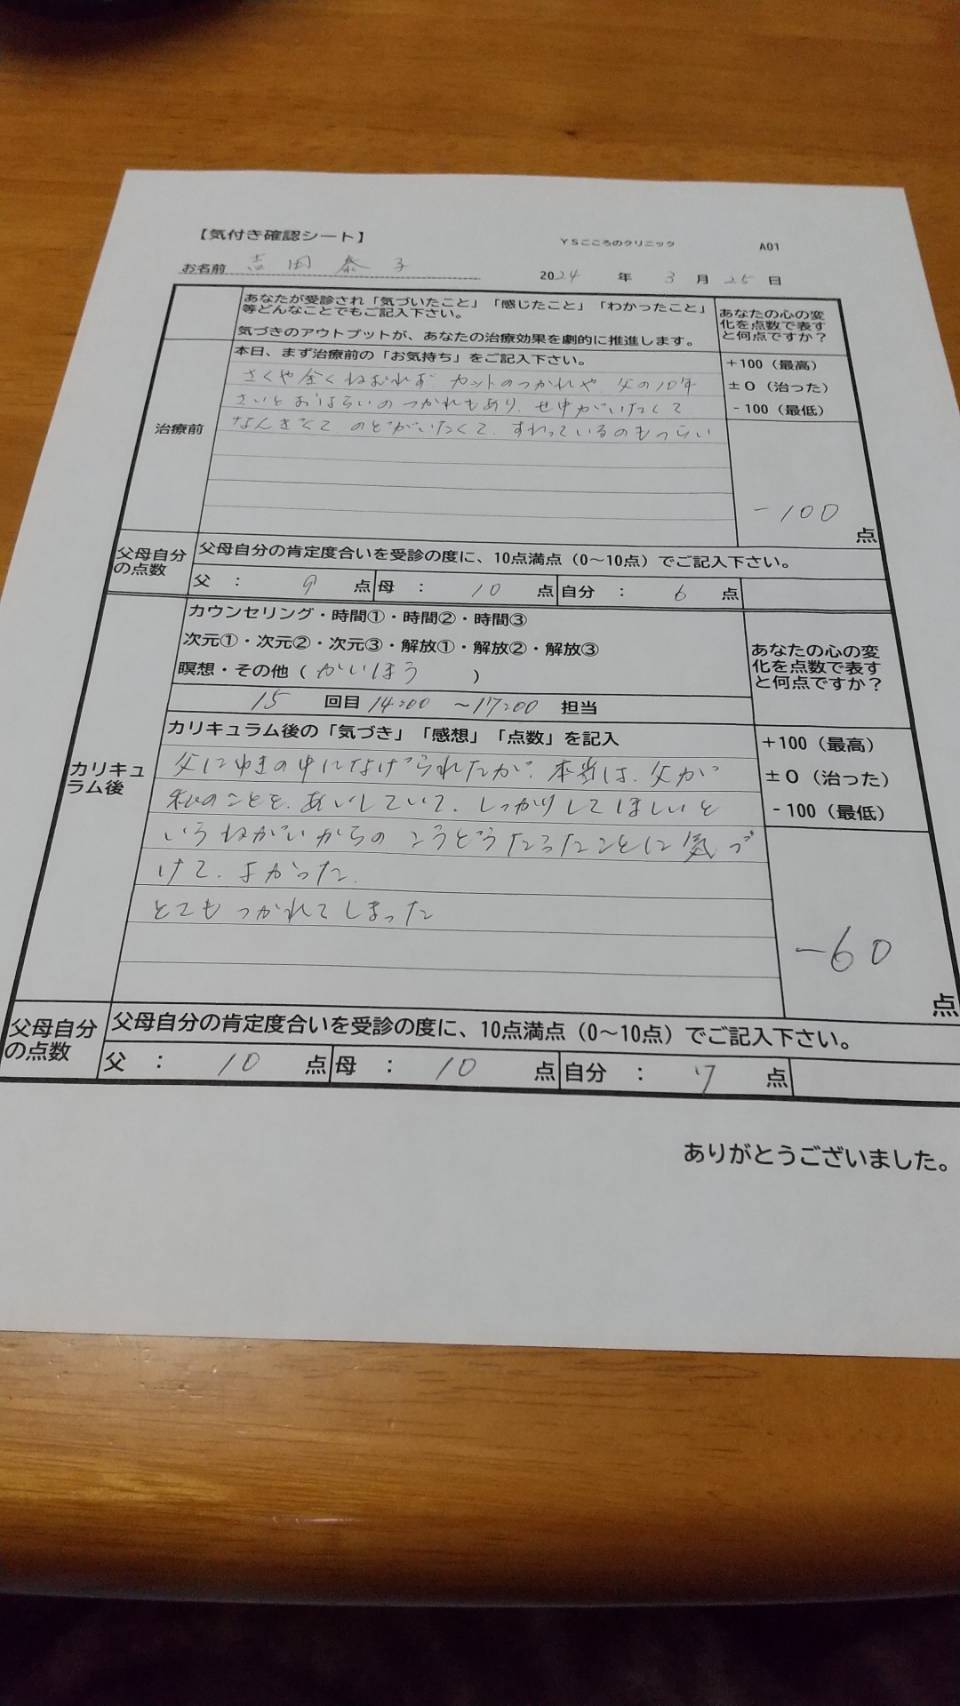 【気付き確認シート】 YSこころのクリニック A01
お名前 吉田泰子 2024 年 3 月 25 日
あなたが受診され「気づいたこと」「感じたこと」「わかったこと」
等どんなことでもご記入下さい。
気づきのアウトプットが、あなたの治療効果を劇的に推進します。
あなたの心の変
化を点数で表す
と何点ですか？
治療前
本日、まず治療前の「お気持ち」をご記入下さい。
さくや全くねむれず カットのつかれや、父の10年
さいとおはらいのつかれもあり、せ中がいたくて
なんぎくて のどがいたくて、すわっているのもつらい
+100（最高）
±0（治った）
-100（最低）
-100
点
父母自分
の点数
父母自分の肯定度合いを受診の度に、10点満点（0～10点）でご記入下さい。
父 ： 9 点 母 ： 10 点 自分 ： 6 点
カウンセリング・時間①・時間②・時間③
次元①・次元②・次元③・解放①・解放②・解放③
瞑想・その他（ かいほう ）
15 回目 14:00 ～17:00 担当
あなたの心の変
化を点数で表す
と何点ですか？
カリキュ
ラム後
カリキュラム後の「気づき」「感想」「点数」を記入
父にゆきの中になげられたが、本当は、父が
私のことを、あいしていて、しっかりしてほしいと
いうねがいからの こうどうだったことに気づ
けて、よかった。
とてもつかれてしまった
+100（最高）
±0（治った）
-100（最低）
-60
点
父母自分
の点数
父母自分の肯定度合いを受診の度に、10点満点（0～10点）でご記入下さい。
父 ： 10 点 母 ： 10 点 自分 ： 7 点
ありがとうございました。